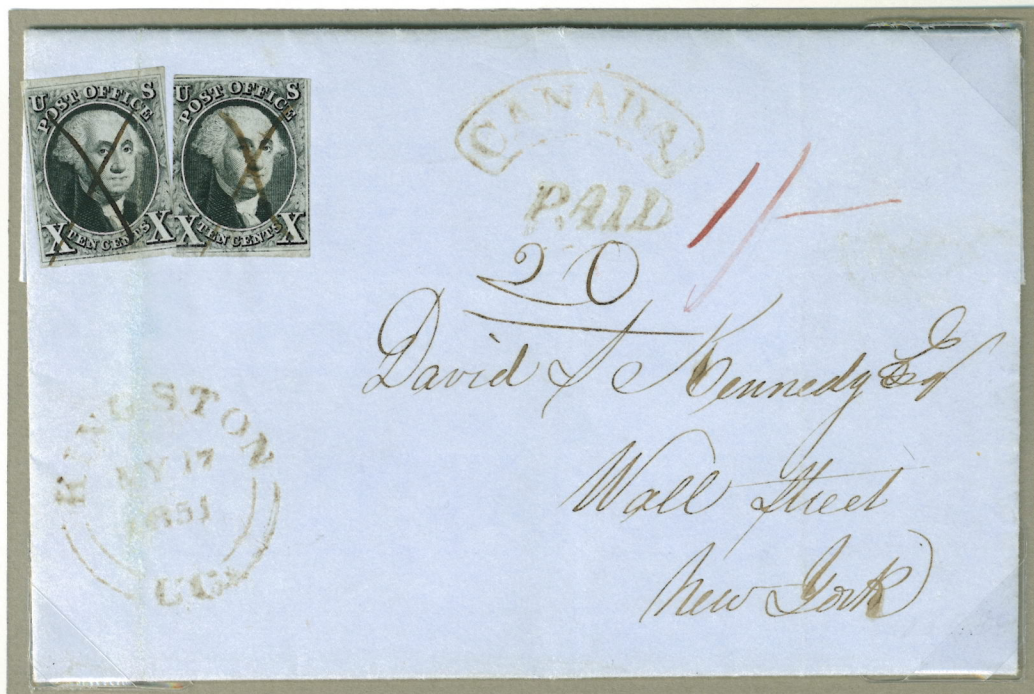 U S
POST OFFICE
X TEN CENTS X
U S
POST OFFICE
X TEN CENTS X
CANADA
PAID
1/-
20
David S Kennedy Esqr
Wall Street
New York
KINGSTON
MY 17
1851
U.C.